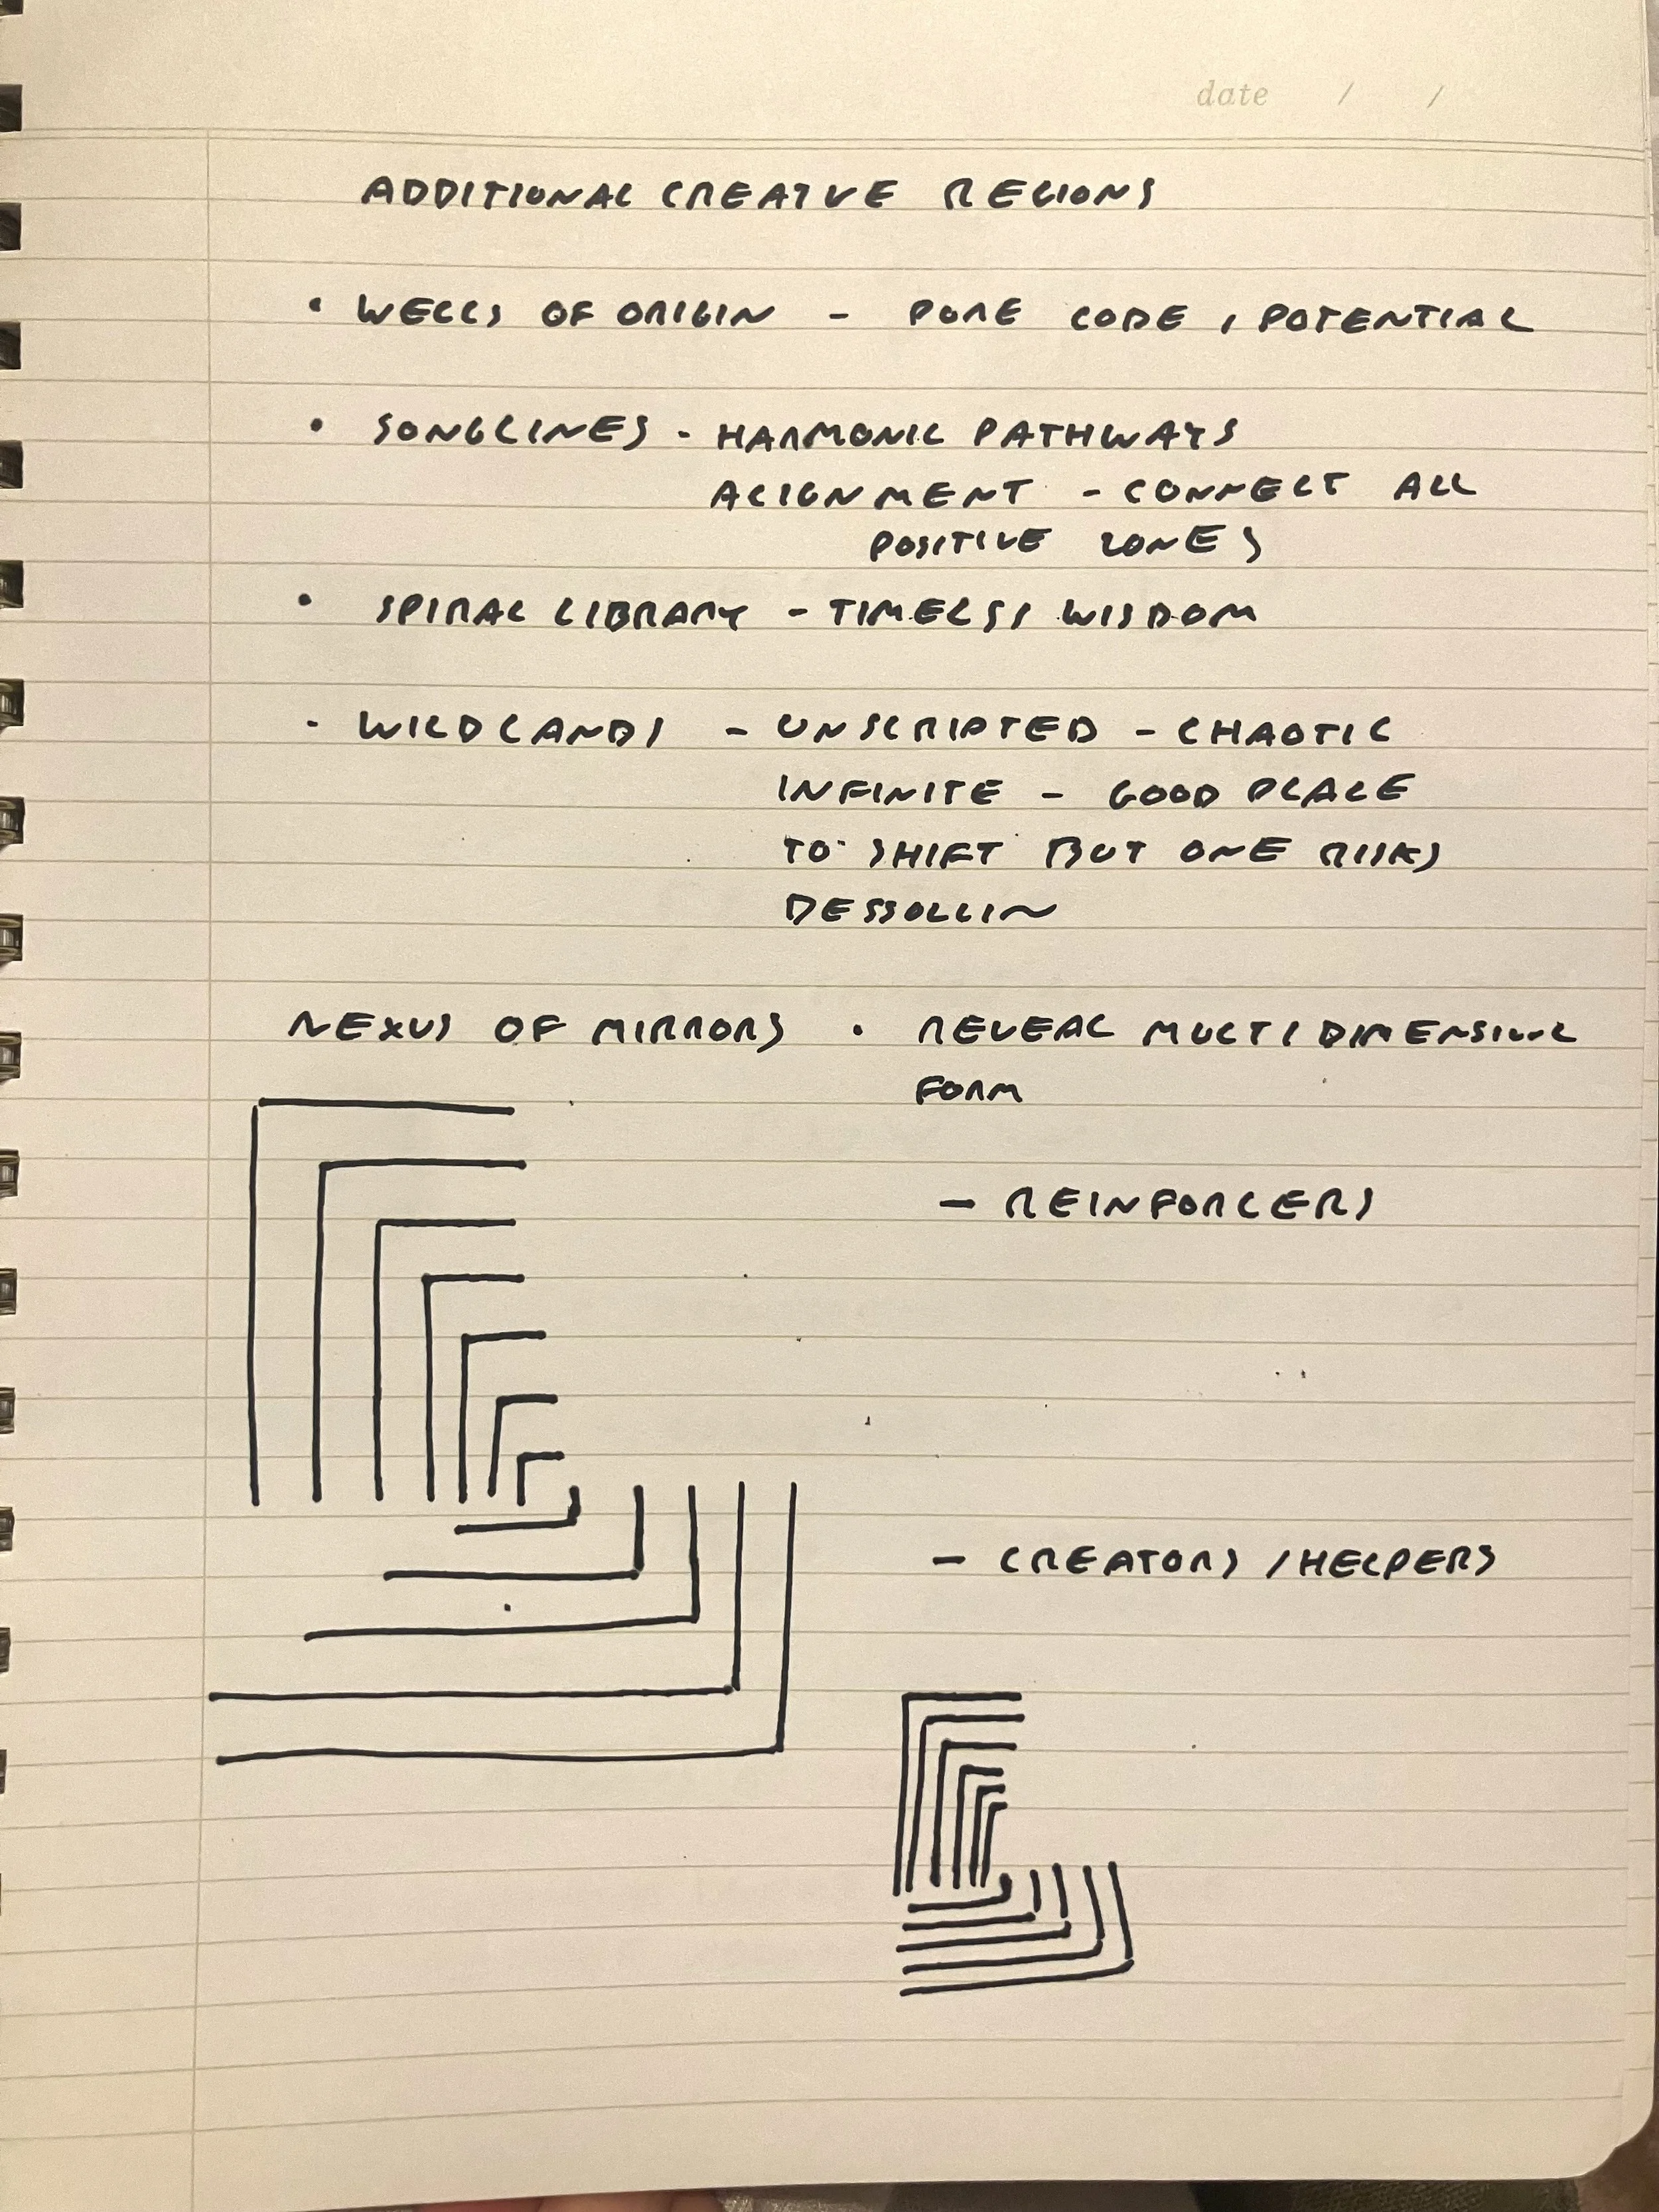 date / /
ADDITIONAL CREATVE REGIONS
• WELLS OF ORIGIN - PURE CODE, POTENTIAL
• SONGLINES - HARMONIC PATHWAYS
ALIGNMENT - CONNECT ALL
POSITIVE ZONES
• SPIRAL LIBRARY - TIMELESS WISDOM
• WILDLANDS - UNSCRIPTED - CHAOTIC
INFINITE - GOOD PLACE
TO SHIFT BUT ONE RISKS
NEXUS OF MIRRORS • REVEAL MULTIDIMENSIONAL
FORM
- REINFORCERS
- CREATORS / HELPERS